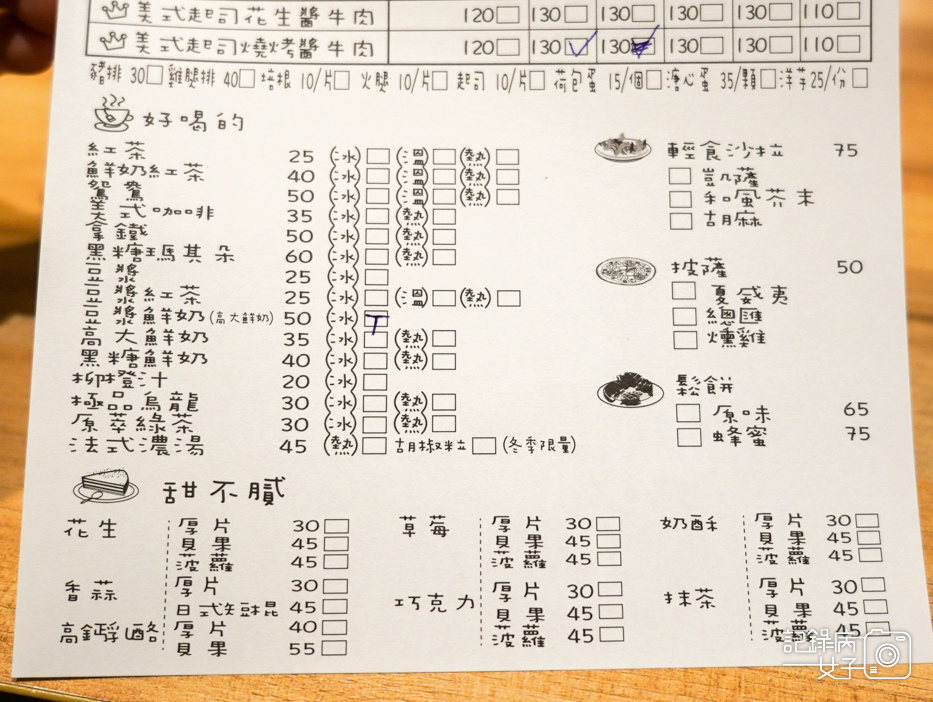 美式起司花生醬牛肉 120□ 130□ 130□ 130□ 130□ 110□
美式起司燒烤醬牛肉 120□ 130□ 130□ 130□ 130□ 110□
豬排 30□ 雞腿排 40□ 培根 10/片□ 火腿 10/片□ 起司 10/片□ 荷包蛋 15/個□ 溏心蛋 35/顆□ 洋芋25/份□
好喝的
紅茶 25 (冰)□(溫)□(熱)□
鮮奶紅茶 40 (冰)□(溫)□(熱)□
鴛鴦 50 (冰)□(溫)□(熱)□
美式咖啡 35 (冰)□(熱)□
拿鐵 50 (冰)□(熱)□
黑糖瑪其朵 60 (冰)□(熱)□
豆漿 25 (冰)□
豆漿紅茶 25 (冰)□(溫)□(熱)□
豆漿鮮奶(高大鮮奶) 50 (冰)□ T
高大鮮奶 35 (冰)□(熱)□
黑糖鮮奶 40 (冰)□(熱)□
柳橙汁 20 (冰)□
極品烏龍 30 (冰)□(熱)□
原萃綠茶 30 (冰)□(熱)□
法式濃湯 45 (熱)□ 胡椒粒□(冬季限量)
輕食沙拉 75
□ 凱薩
□ 和風芥末
□ 胡麻
披薩 50
□ 夏威夷
□ 總匯
□ 燻雞
鬆餅
□ 原味 65
□ 蜂蜜 75
甜不膩
花生 厚片 30□
貝果 45□
菠蘿 45□
香蒜 厚片 30□
日式短棍 45□
高鈣乳酪 厚片 40□
貝果 55□
草莓 厚片 30□
貝果 45□
菠蘿 45□
巧克力 厚片 30□
貝果 45□
菠蘿 45□
奶酥 厚片 30□
貝果 45□
菠蘿 45□
抹茶 厚片 30□
貝果 45□
菠蘿 45□
記錄丙女子